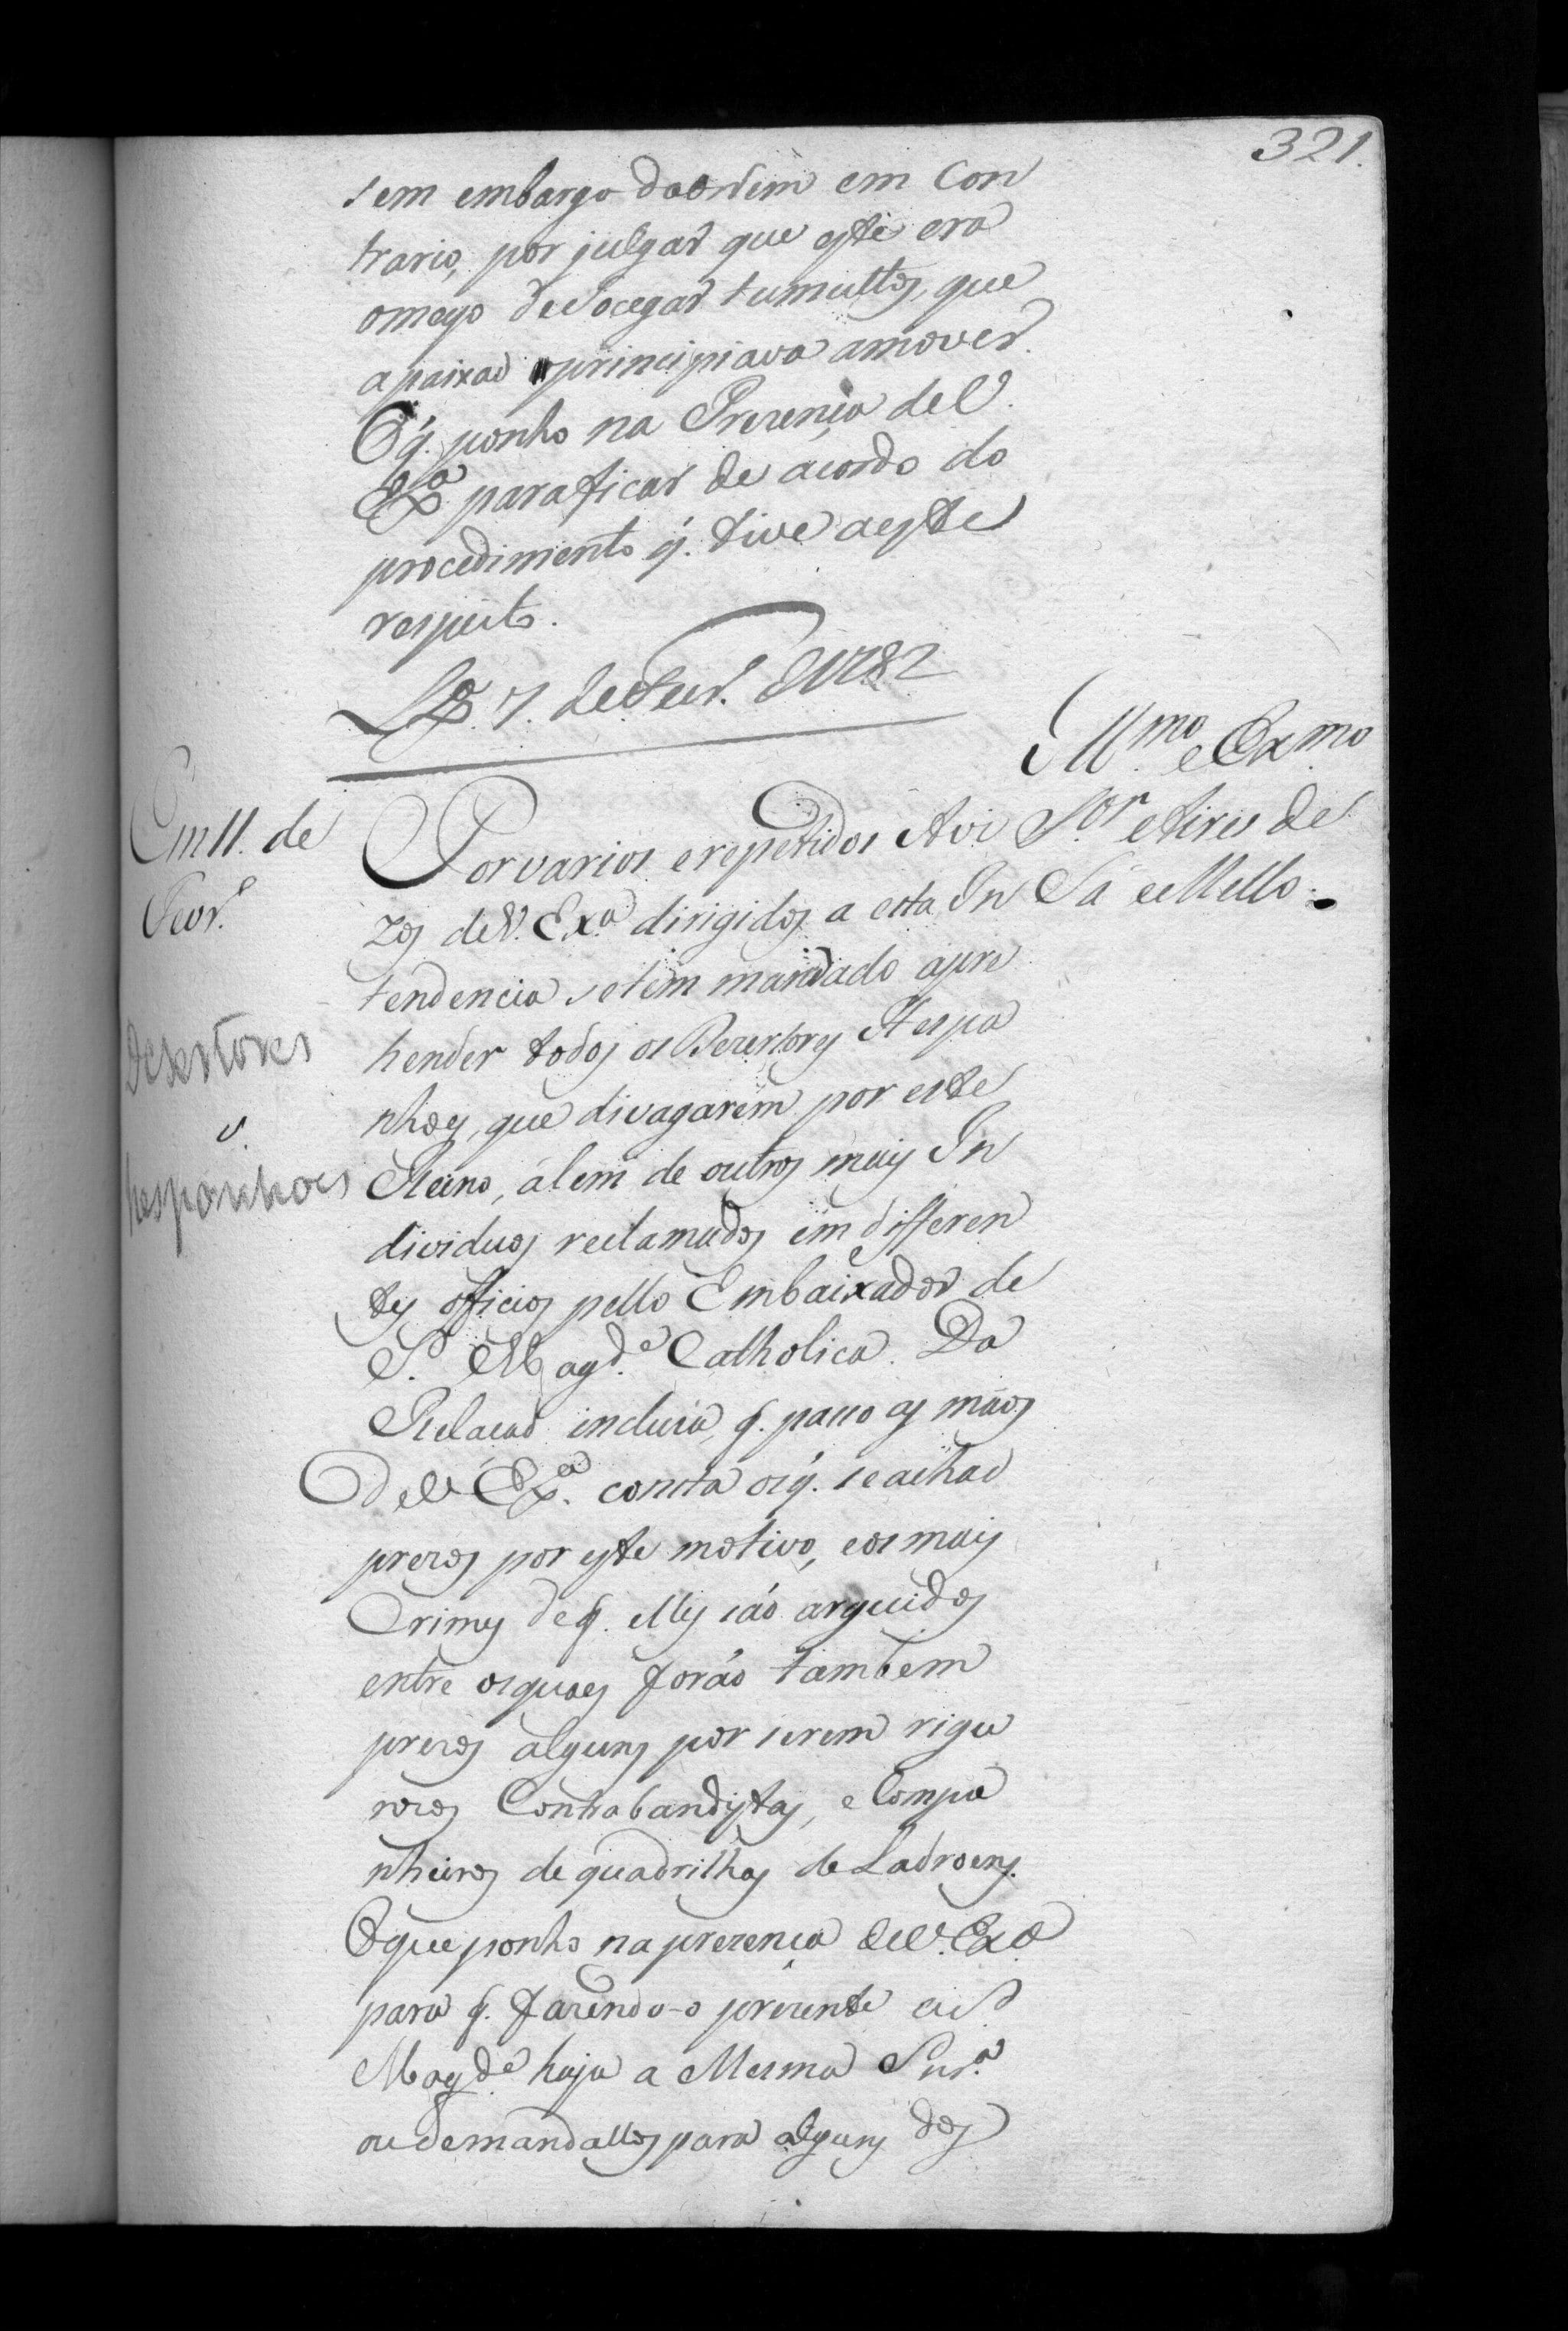 321.
sem embargo daordem em Con
trario, por julgar que este era
omeyo deSocegar tumultos, que
apaixaõ principiava amover.
O q̃. ponho na Prezença deV.
Exª. paraficar de acordo do
procedimento q̃. tive aeste
respeito.
Lxª. 7. deFevr.º de 1782
Illmo. e Exmo
Sor. Aires de
Sá e Mello.
Em 11. de
Fevr.º
Dezertores
e
hespanhoes
Por varios erepetidos Avi
zos deV. Exª. dirigidos a esta In
tendencia setem mandado apre
hender todos os Dezertores Hespa
nhoes, que divagarem por este
Reino, álem de outros mais In
dividuos reclamados em differen
tes officios pello Embaixador de
S. Magd.e Catholica. Da
Relacaõ incluza, q̃. passo as maõs
deV. Exª. consta osq̃. seachaõ
prezos por este motivo, eos mais
Crimes deq̃. elles saõ arguidos
entre osquaes foraõ tambem
prezos alguns por serem rigu
rozos Contrabandistas, e Compa
nheiros de quadrilhas de Ladroens.
Oque ponho naprezença deV. Exª
para q̃. fazendo-o prezente a S.
Magd.e haja a Mesma Snr.ª
oudemandallos para alguns dos